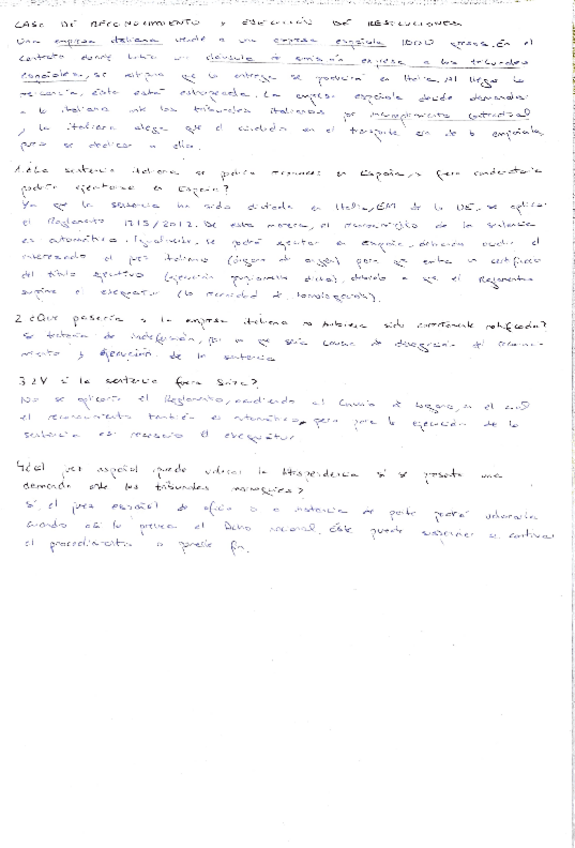 CASO DE RECONOCIMIENTO y EJECUCIÓN DE RESOLUCIONES
Una empresa italiana vende a una empresa española 1000 . En el
contrato donde había una cláusula de sumisión expresa a los tribunales
españoles, se que la entrega se en Italia. Al llegar la
mercancía, ésta está estropeada. La empresa española decide demandar
a la italiana ante los tribunales italianos por incumplimiento contractual
y la italiana alega que el en el transporte era de la española,
pues se dedica a ello.
1. ¿La sentencia italiana se podría reconocer en España, y fuera condenatoria
podría ejecutarse en España?
Ya que la sentencia ha sido dictada en Italia, EM de la UE, se aplica
el Reglamento 1215/2012. De esta manera, el reconocimiento de la sentencia
es automático. , se podrá ejecutar en España, debiendo el
interesado al juez italiano (órgano de origen) para que emita un certificado
del título ejecutivo (ejecución propiamente dicha), debido a que el Reglamento
suprime el exequatur (la necesidad de homologación).
2 ¿Que pasaría si la empresa italiana no hubiese sido correctamente notificada?
Se trataría de indefensión, por lo que sería causa de denegación del reconoci-
miento y ejecución de la sentencia
3. ¿Y si la sentencia fuera Suiza?
No se aplicaría el Reglamento, acudiendo al Convenio de Lugano, en el cual
el reconocimiento también es automático, pero para la ejecución de la
sentencia es necesario el exequátur
4. ¿El juez español puede valorar la litispendencia si se presenta una
demanda ante los tribunales marroquíes?
Sí, el juez español de oficio o a instancia de parte podrá valorarla
cuando así lo prevea el Dcho nacional. Éste puede suspender si continuar
el procedimiento o ponerle fin.